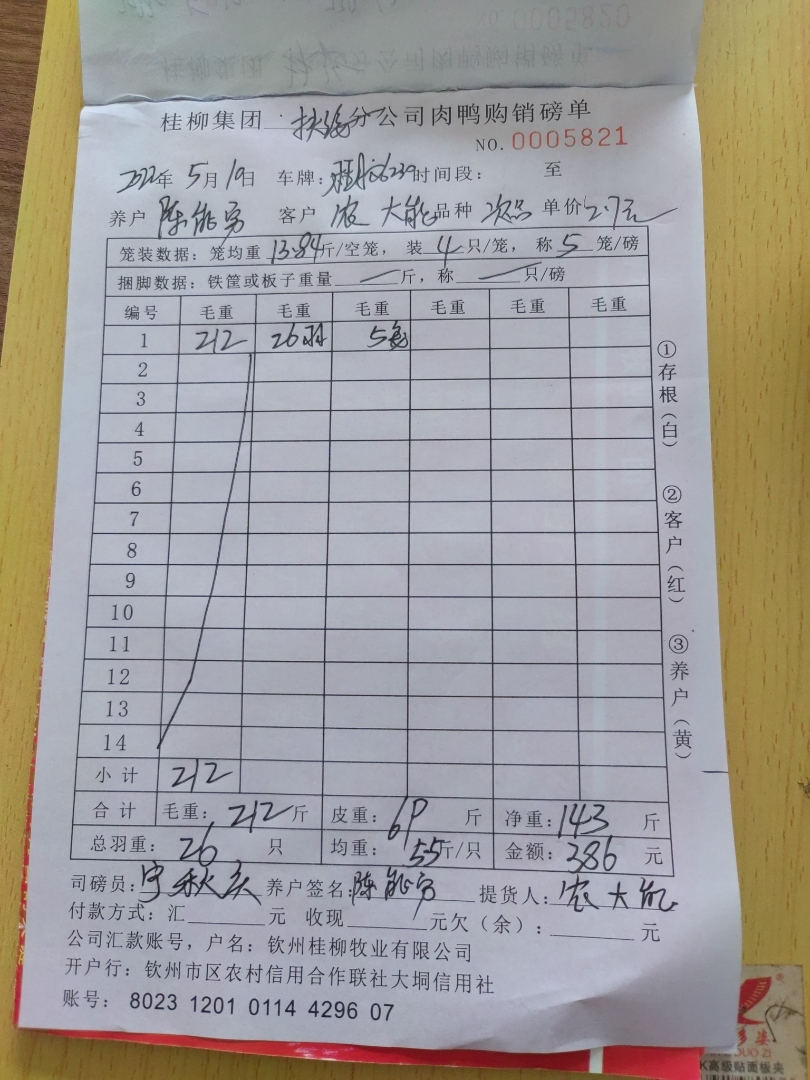 桂柳集团 扶绥分公司肉鸭购销磅单
NO. 0005821
2022年5月19日 车牌: 时间段: 至
养户 陈能勇 客户 农大能 品种 次品 单价 2.7元
笼装数据: 笼均重 13.84斤/空笼, 装 4 只/笼, 称 5 笼/磅
捆脚数据: 铁筐或板子重量 — 斤, 称 — 只/磅
编号 毛重 毛重 毛重 毛重 毛重 毛重
1 212 26羽 5笼
2
3
4
5
6
7
8
9
10
11
12
13
14
小计 212
合计 毛重: 212斤 皮重: 69 斤 净重: 143 斤
总羽重: 26 只 均重: 5.5斤/只 金额: 386 元
司磅员: 养户签名: 陈能勇 提货人: 农大能
付款方式: 汇 元 收现 元欠(余): 元
公司汇款账号, 户名: 钦州桂柳牧业有限公司
开户行: 钦州市区农村信用合作联社大垌信用社
账号: 8023 1201 0114 4296 07
①存根(白)
②客户(红)
③养户(黄)
K高级贴面板夹